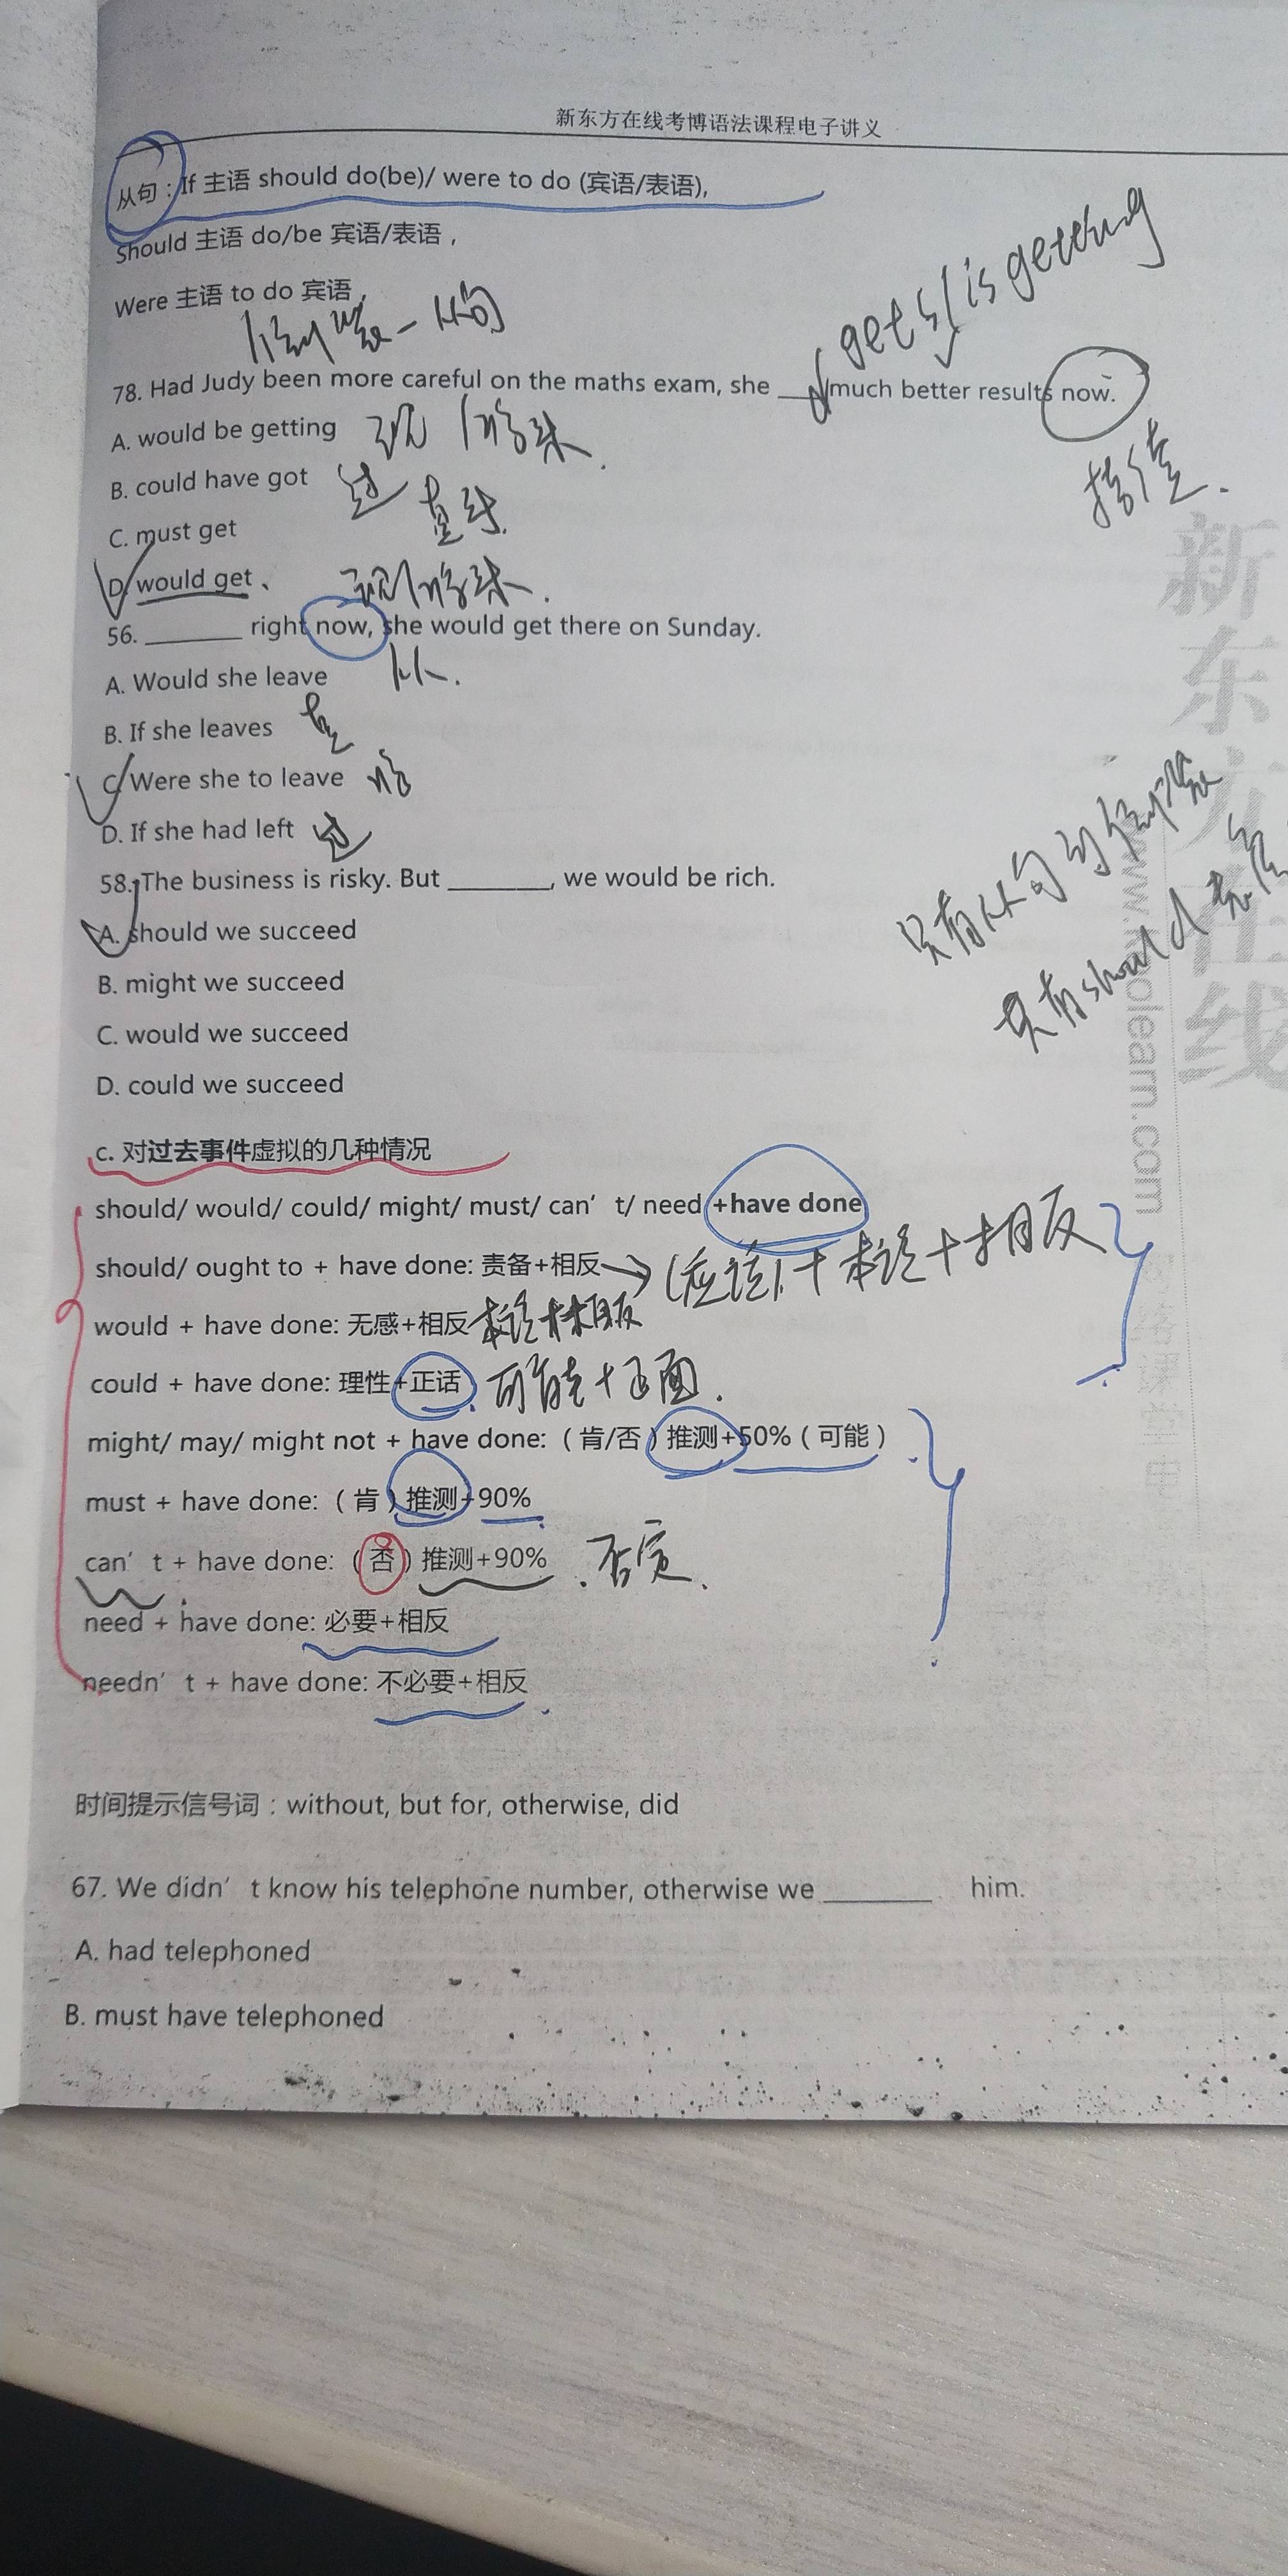 新东方在线考博语法课程电子讲义
从句：If 主语 should do(be)/ were to do (宾语/表语),
Should 主语 do/be 宾语/表语，
Were 主语 to do 宾语，
倒装-从句
gets/is getting
78. Had Judy been more careful on the maths exam, she ____ much better results now.
A. would be getting 现/将来.
B. could have got 过
C. must get 真实.
D. would get 现/将来.
56. ________ right now, she would get there on Sunday.
A. Would she leave 从.
B. If she leaves
C. Were she to leave 将
D. If she had left 过
58. The business is risky. But ________, we would be rich.
A. should we succeed
B. might we succeed
C. would we succeed
D. could we succeed
只有从句的倒装
只有should
c. 对过去事件虚拟的几种情况
should/ would/ could/ might/ must/ can’t/ need +have done
should/ ought to + have done: 责备+相反 → (应该)+本该+相反
would + have done: 无感+相反
could + have done: 理性+正话 可能+正面.
might/ may/ might not + have done:（肯/否）推测+50%（可能）
must + have done:（肯）推测+90%
can’t + have done:（否）推测+90% 否定.
need + have done: 必要+相反
needn’t + have done: 不必要+相反
时间提示信号词：without, but for, otherwise, did
67. We didn’t know his telephone number, otherwise we ________ him.
A. had telephoned
B. must have telephoned
新东方在线
www.koolearn.com
网络课堂电